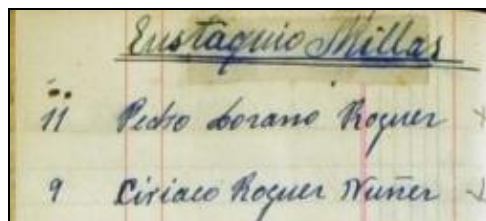 Eustaquio Millas
11 Pedro Lorano Roquer
9 Ciriaco Roquer Nuñer